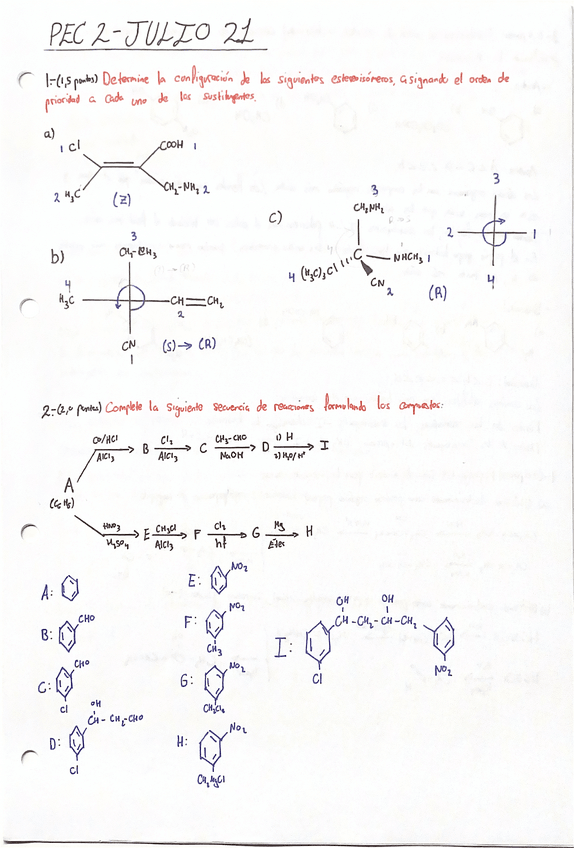 PEC 2-JULIO 21
1.-(1,5 puntos) Determine la configuración de los siguientes estereoisómeros, asignando el orden de
prioridad a cada uno de los sustituyentes.
a)
1 Cl
COOH 1
2 H3C
CH2-NH2 2
(Z)
b)
3
4
H3C
CH=CH2
2
CN
1
(S) → (R)
c)
3
CH2NH2
C
NHCH3 1
4 (H3C)3C
CN
2
3
2
1
4
(R)
2.-(2,0 puntos) Complete la siguiente secuencia de reacciones formulando los compuestos:
A
(C6H6)
CO/HCl
AlCl3
B
Cl2
AlCl3
C
CH3-CHO
NaOH
D
1) H
2) H2O/H+
I
HNO3
H2SO4
E
CH3Cl
AlCl3
F
Cl2
hf
G
Mg
Éter
H
A:
B:
CHO
C:
CHO
Cl
D:
OH
CH-CH2-CHO
Cl
E:
NO2
F:
NO2
CH3
G:
NO2
H:
NO2
CH2MgCl
I:
OH
CH-CH2-CH-CH2
OH
Cl
NO2